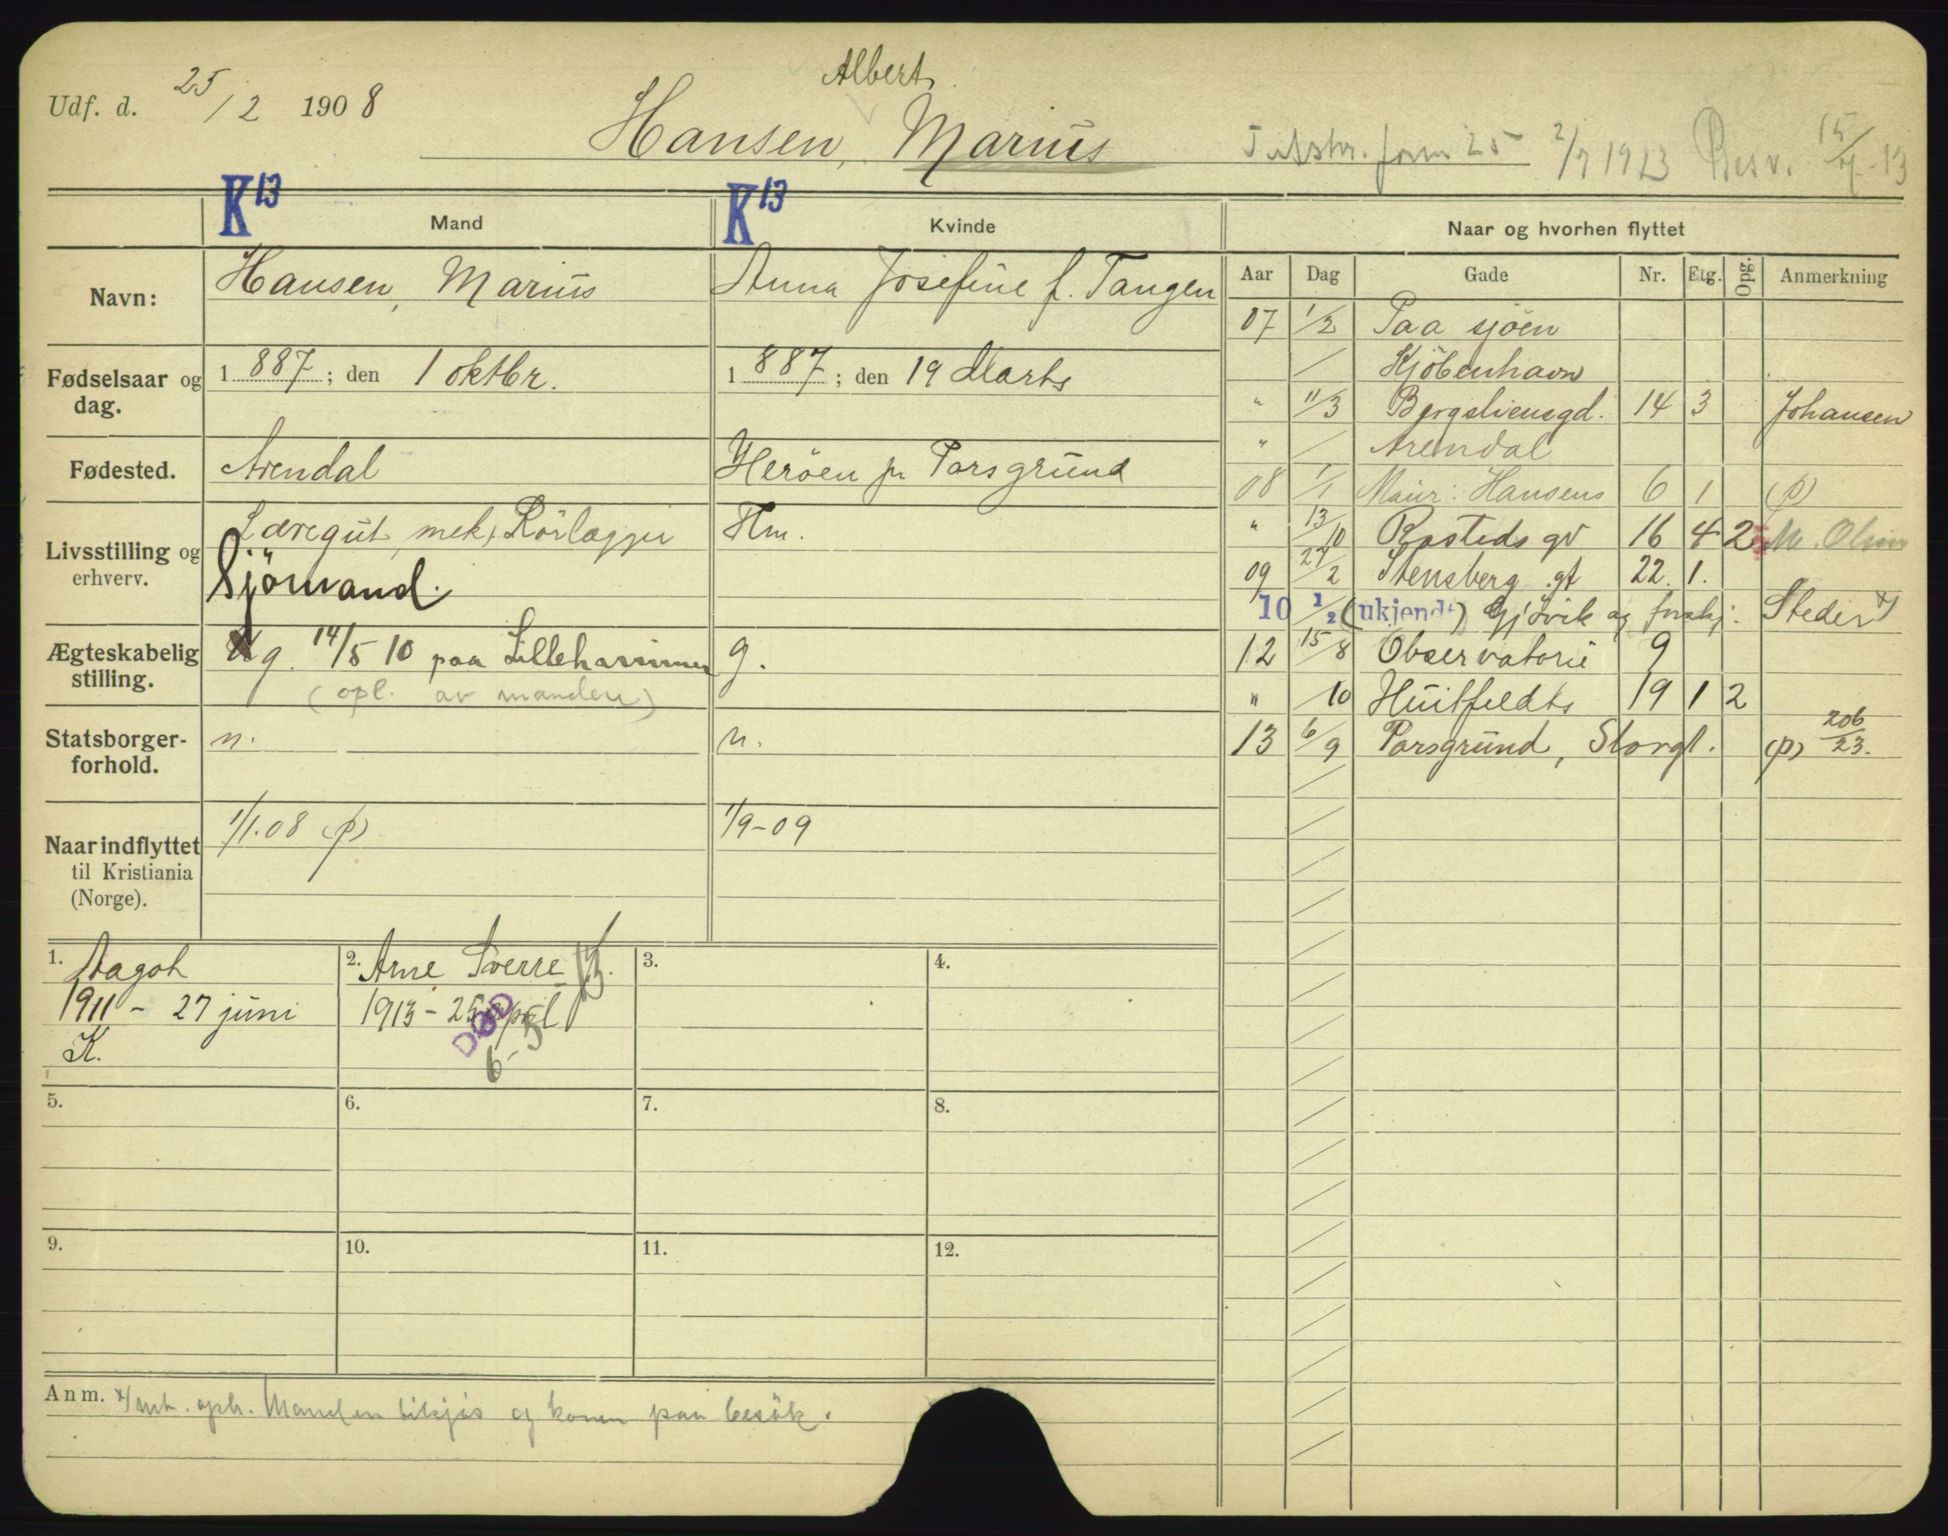 Udf. d. 25/2 1908
Albert
Hansen, Marius
form 25 2/7 1913 Besv. 15/7-13
K13 Mand
K13 Kvinde
Naar og hvorhen flyttet
Navn: Hansen, Marius
Anna Josefine f. Tangen
Fødselsaar og dag. 1 887; den 1 oktbr.
1 887; den 19 Marts
Fødested. Arendal
Herøen pr Porsgrund
Livsstilling og erhverv. Læregut, mek, Rörlægger
Sjömand.
Hm.
Ægteskabelig stilling. g. 14/5 10 paa Lillehammer
(opl. av manden)
g.
Statsborgerforhold. n.
n.
Naar indflyttet til Kristiania (Norge). 1/1.08 (p)
1/9-09
Aar Dag Gade Nr. Etg. Opg. Anmerkning
07 1/2 Paa sjöen
/ Kjöbenhavn
" 11/3 Bergsliensgd. 14 3 Johansen
" / Arendal
08 1/1 Maur: Hansens 6 1 (p)
" 13/10 Rosteds gd 16 4 2 M. Olsen
09 27/2 Stensberg gt 22. 1.
10 1/2 (ukjendt) Gjövik og forskj. Steder x)
12 15/8 Observatorie 9
" /10 Huitfeldts 19 1 2
13 6/9 Porsgrund, Storgt. (p) 206/23.
1. Aagot
1911 - 27 juni
K.
2. Arne Sverre
1913 - 25 april
DØD
6-5
3.
4.
5.
6.
7.
8.
9.
10.
11.
12.
Anm. x) Manden tilsjös og konen paa besök.